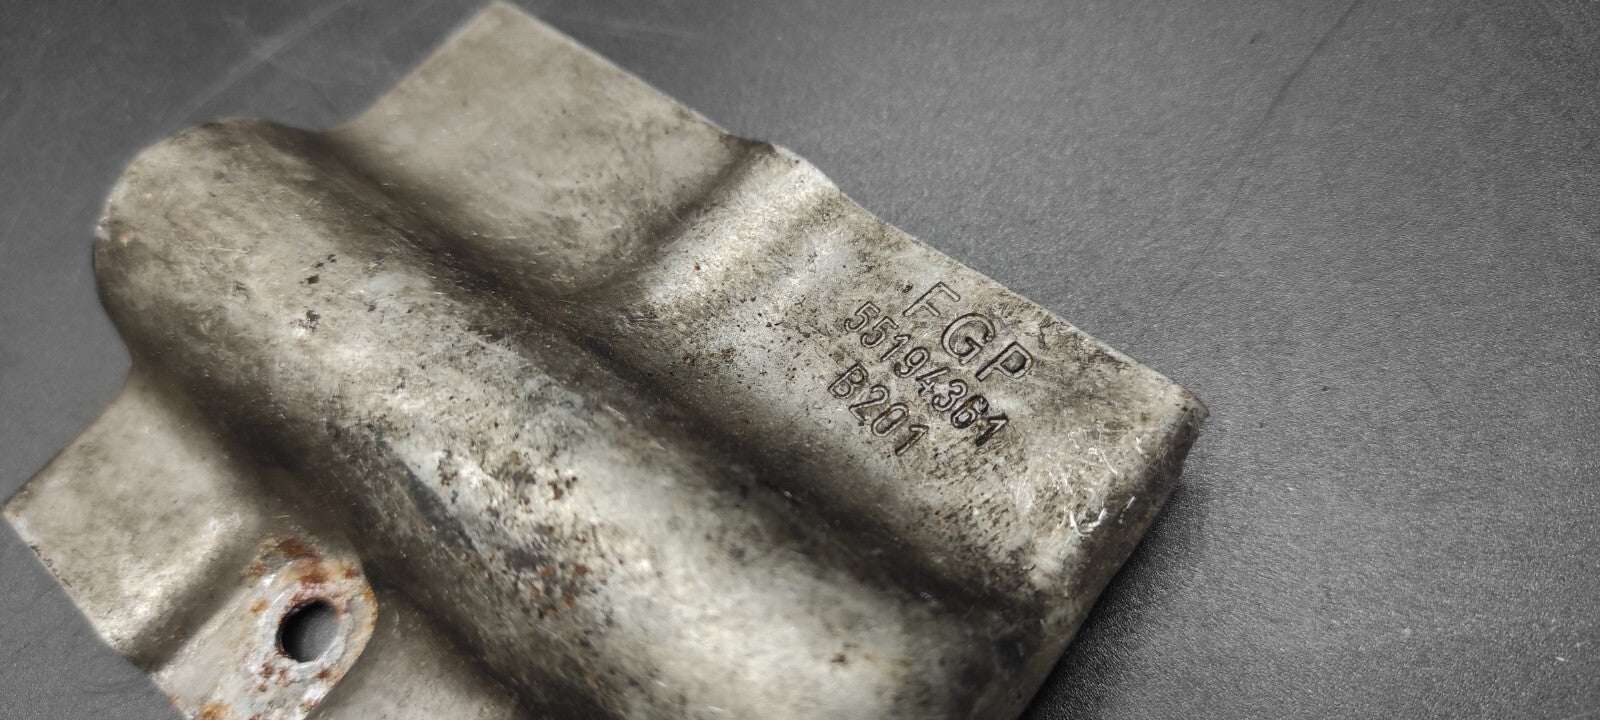 FGP
55194361
B201